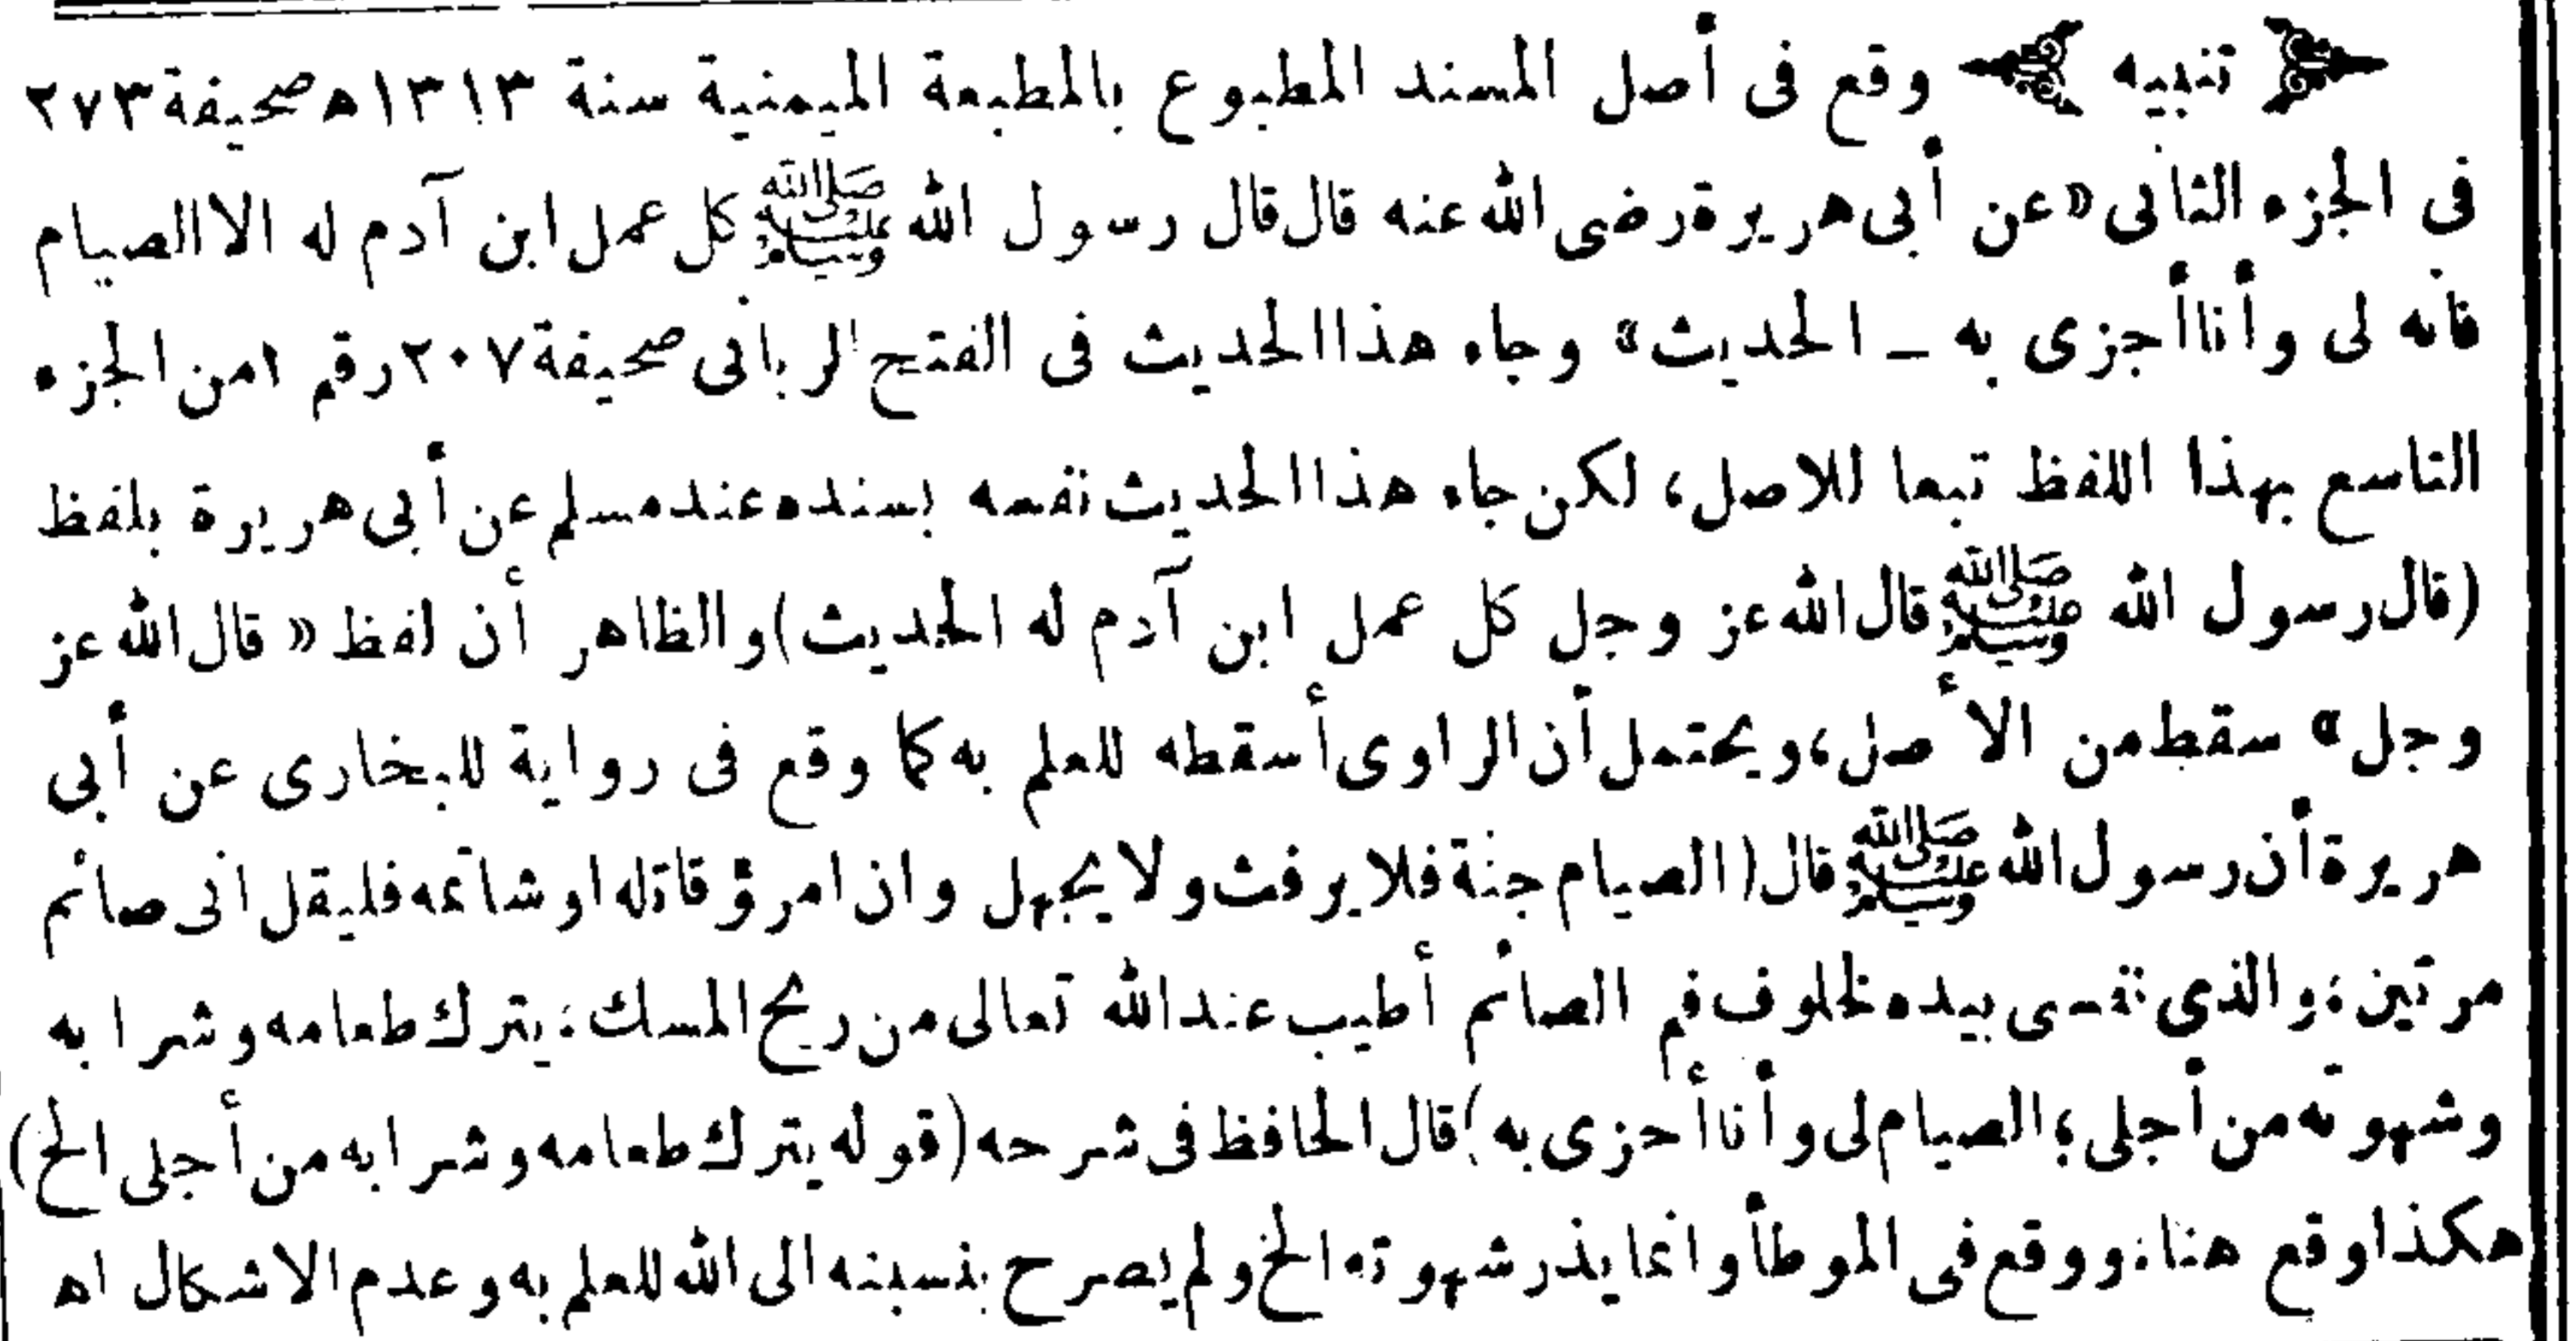 ﴿ تنبيه ﴾ وقع فى أصل المسند المطبوع بالمطبعة الميمنية سنة ١٣١٣ه صحيفة ٢٧٣
فى الجزء الثانى «عن أبى هريرة رضى الله عنه قال قال رسول الله ﷺ كل عمل ابن آدم له الا الصيام
فانه لى وأنا أجزى به ــ الحديث» وجاء هذا الحديث فى الفتح الربانى صحيفة ٢٠٧ رقم ١ من الجزء
التاسع بهذا اللفظ تبعا للاصل، لكن جاء هذا الحديث نفسه بسنده عند مسلم عن أبى هريرة بلفظ
(قال رسول الله ﷺ قال الله عز وجل كل عمل ابن آدم له الحديث) والظاهر أن لفظ « قال الله عز
وجل » سقط من الأصل، ويحتمل أن الراوى أسقطه للعلم به كما وقع فى رواية للبخارى عن أبى
هريرة أن رسول الله ﷺ قال (الصيام جنة فلا يرفث ولا يجهل وان امرؤ قاتله او شاتمه فليقل انى صائم
مرتين؛ والذي نفسى بيده لخلوف فم الصائم أطيب عند الله تعالى من ريح المسك؛ يترك طعامه وشرابه
وشهوته من أجلى؛ الصيام لى وأنا أجزى به) قال الحافظ فى شرحه (قوله يترك طعامه وشرابه من أجلى الخ)
هكذا وقع هنا؛ ووقع فى الموطأ وانما يذر شهوته الخ ولم يصرح بنسبته الى الله للعلم به وعدم الاشكال اه